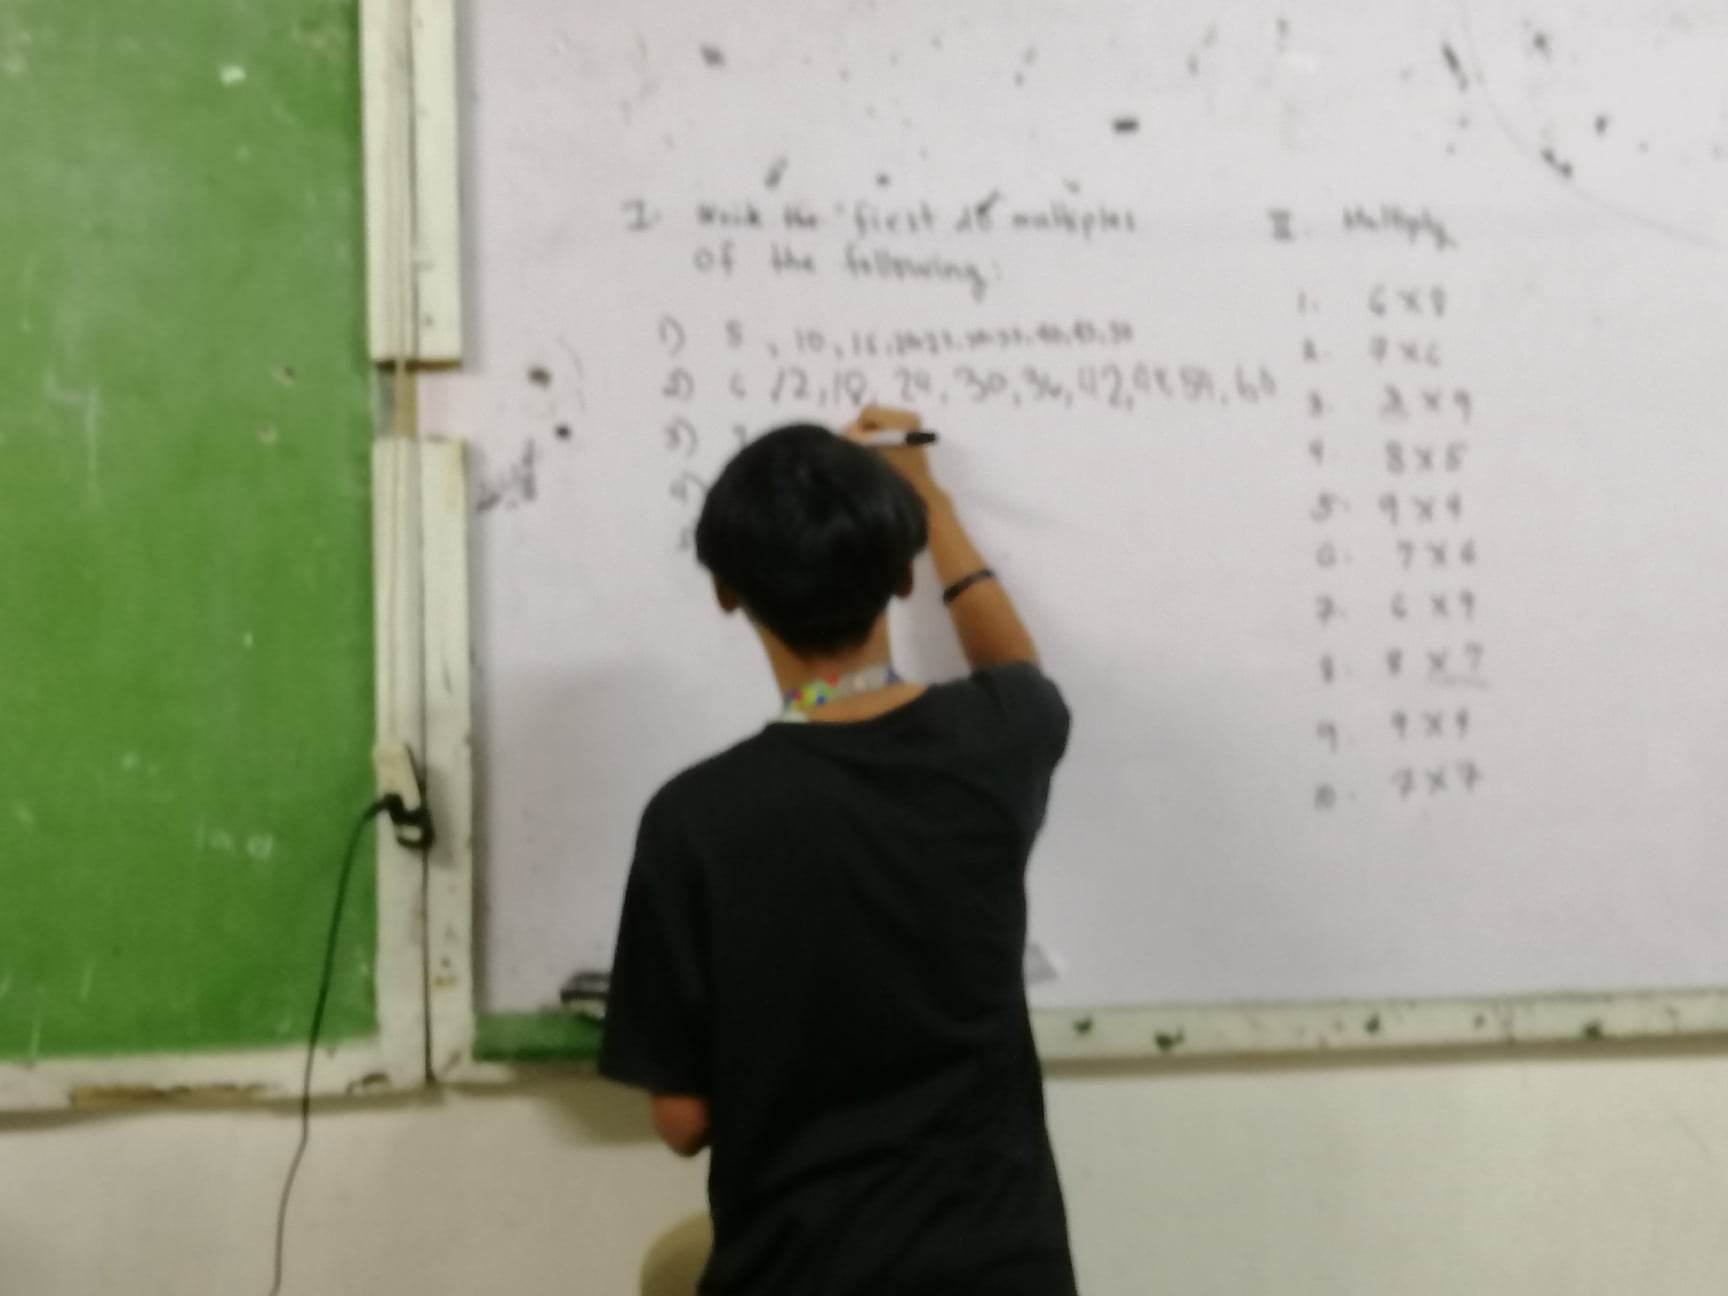 I. Write the first 10 multiples
of the following:
1) 5, 10, 15, 20, 25, 30, 35, 40, 45, 50
2) 6 12, 18, 24, 30, 36, 42, 48 54, 60
3)
4)
II. Multiply
1. 6 x 8
2. 7 x 6
3. 3 x 9
4. 8 x 5
5. 9 x 4
6. 7 x 6
7. 6 x 9
8. 8 x 7
9. 9 x 9
10. 7 x 7